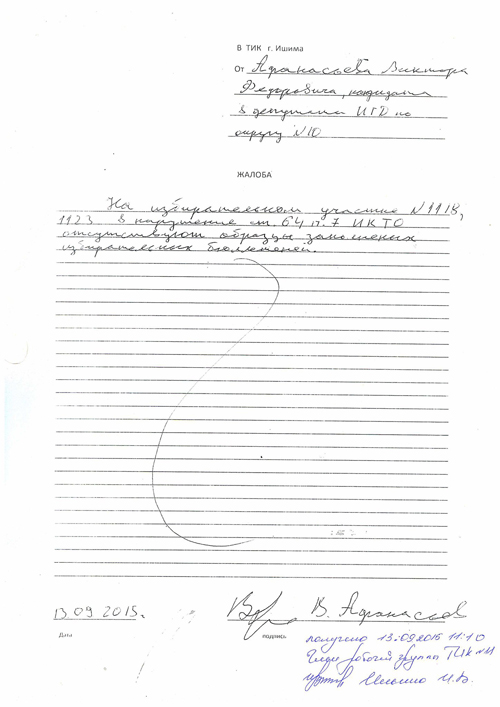 В ТИК г. Ишима
От Афанасьева Виктора
Федоровича, кандидата
в депутаты ИГД по
округу №10
ЖАЛОБА
На избирательном участке №1118,
1123 в нарушение ст. 64 п. 7 ИКТО
отсутствуют образцы заполненых
избирательных бюллетеней.
13 09 2015г.
В. Афанасьев
Дата
подпись
получено 13.09.2015 11:10
рабочей группы ТИК